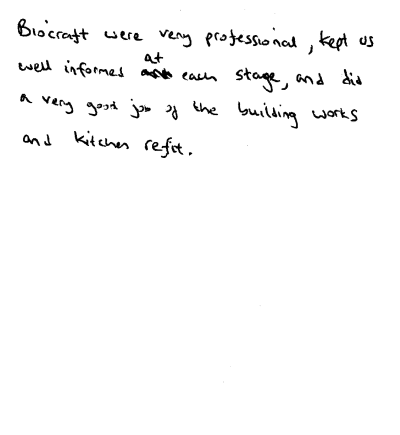 Biocraft were very professional, kept us
well informed at each stage, and did
a very good job of the building works
and kitchen refit.